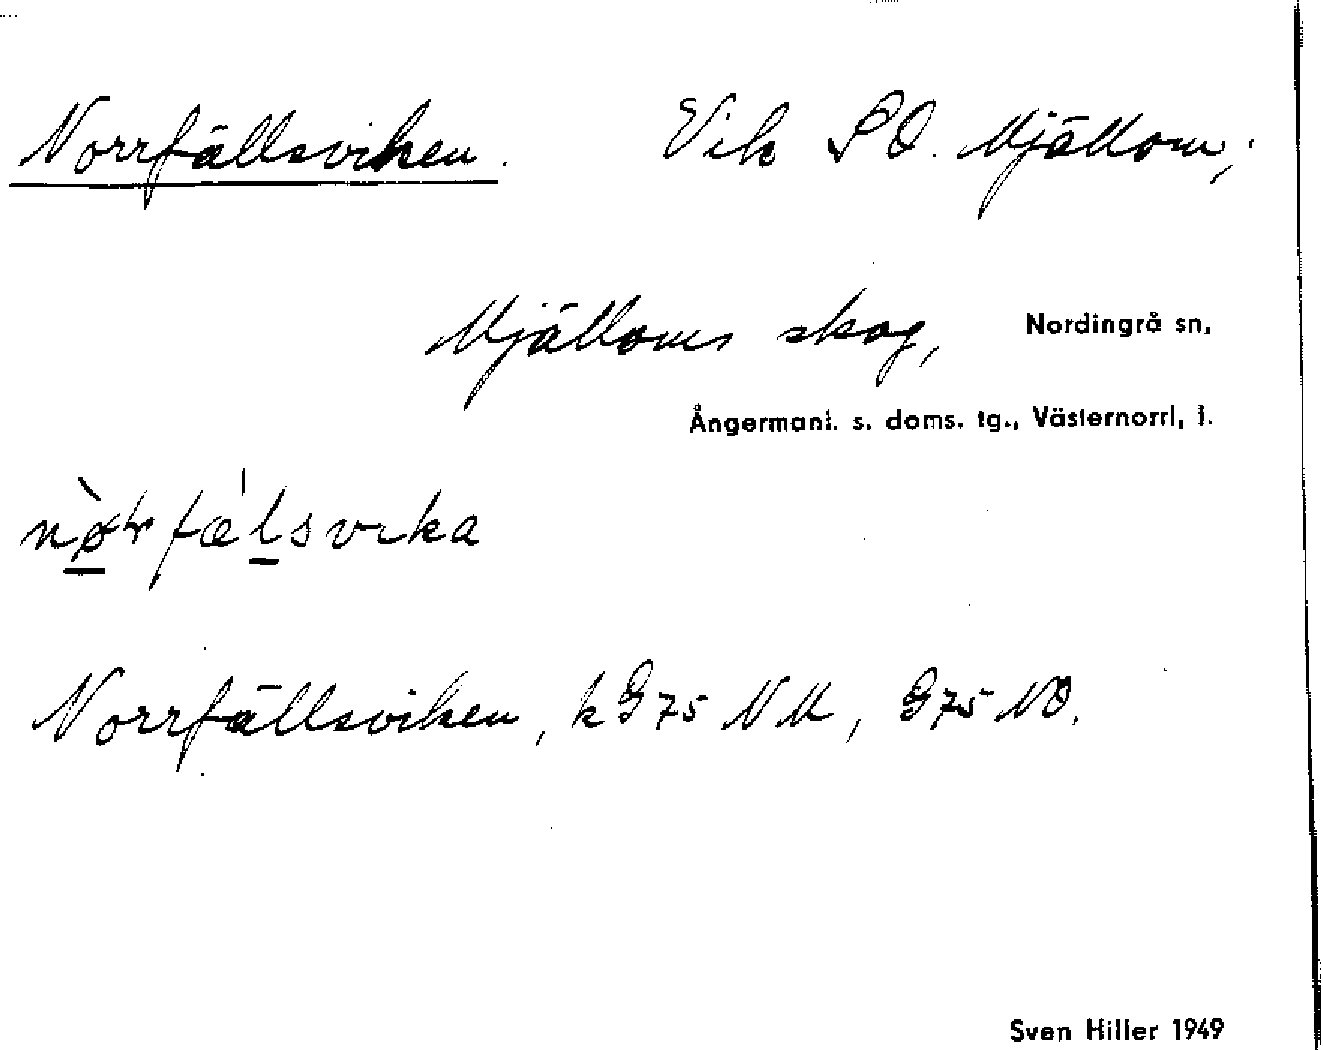 Norrfällsviken. Vik S Ö. Mjällom,
Mjälloms skog, Nordingrå sn,
Ångermanl. s. doms. tg., Västernorrl, l.
Norrfällsviken, k G 75 NM, G 75 NÖ.
Sven Hiller 1949